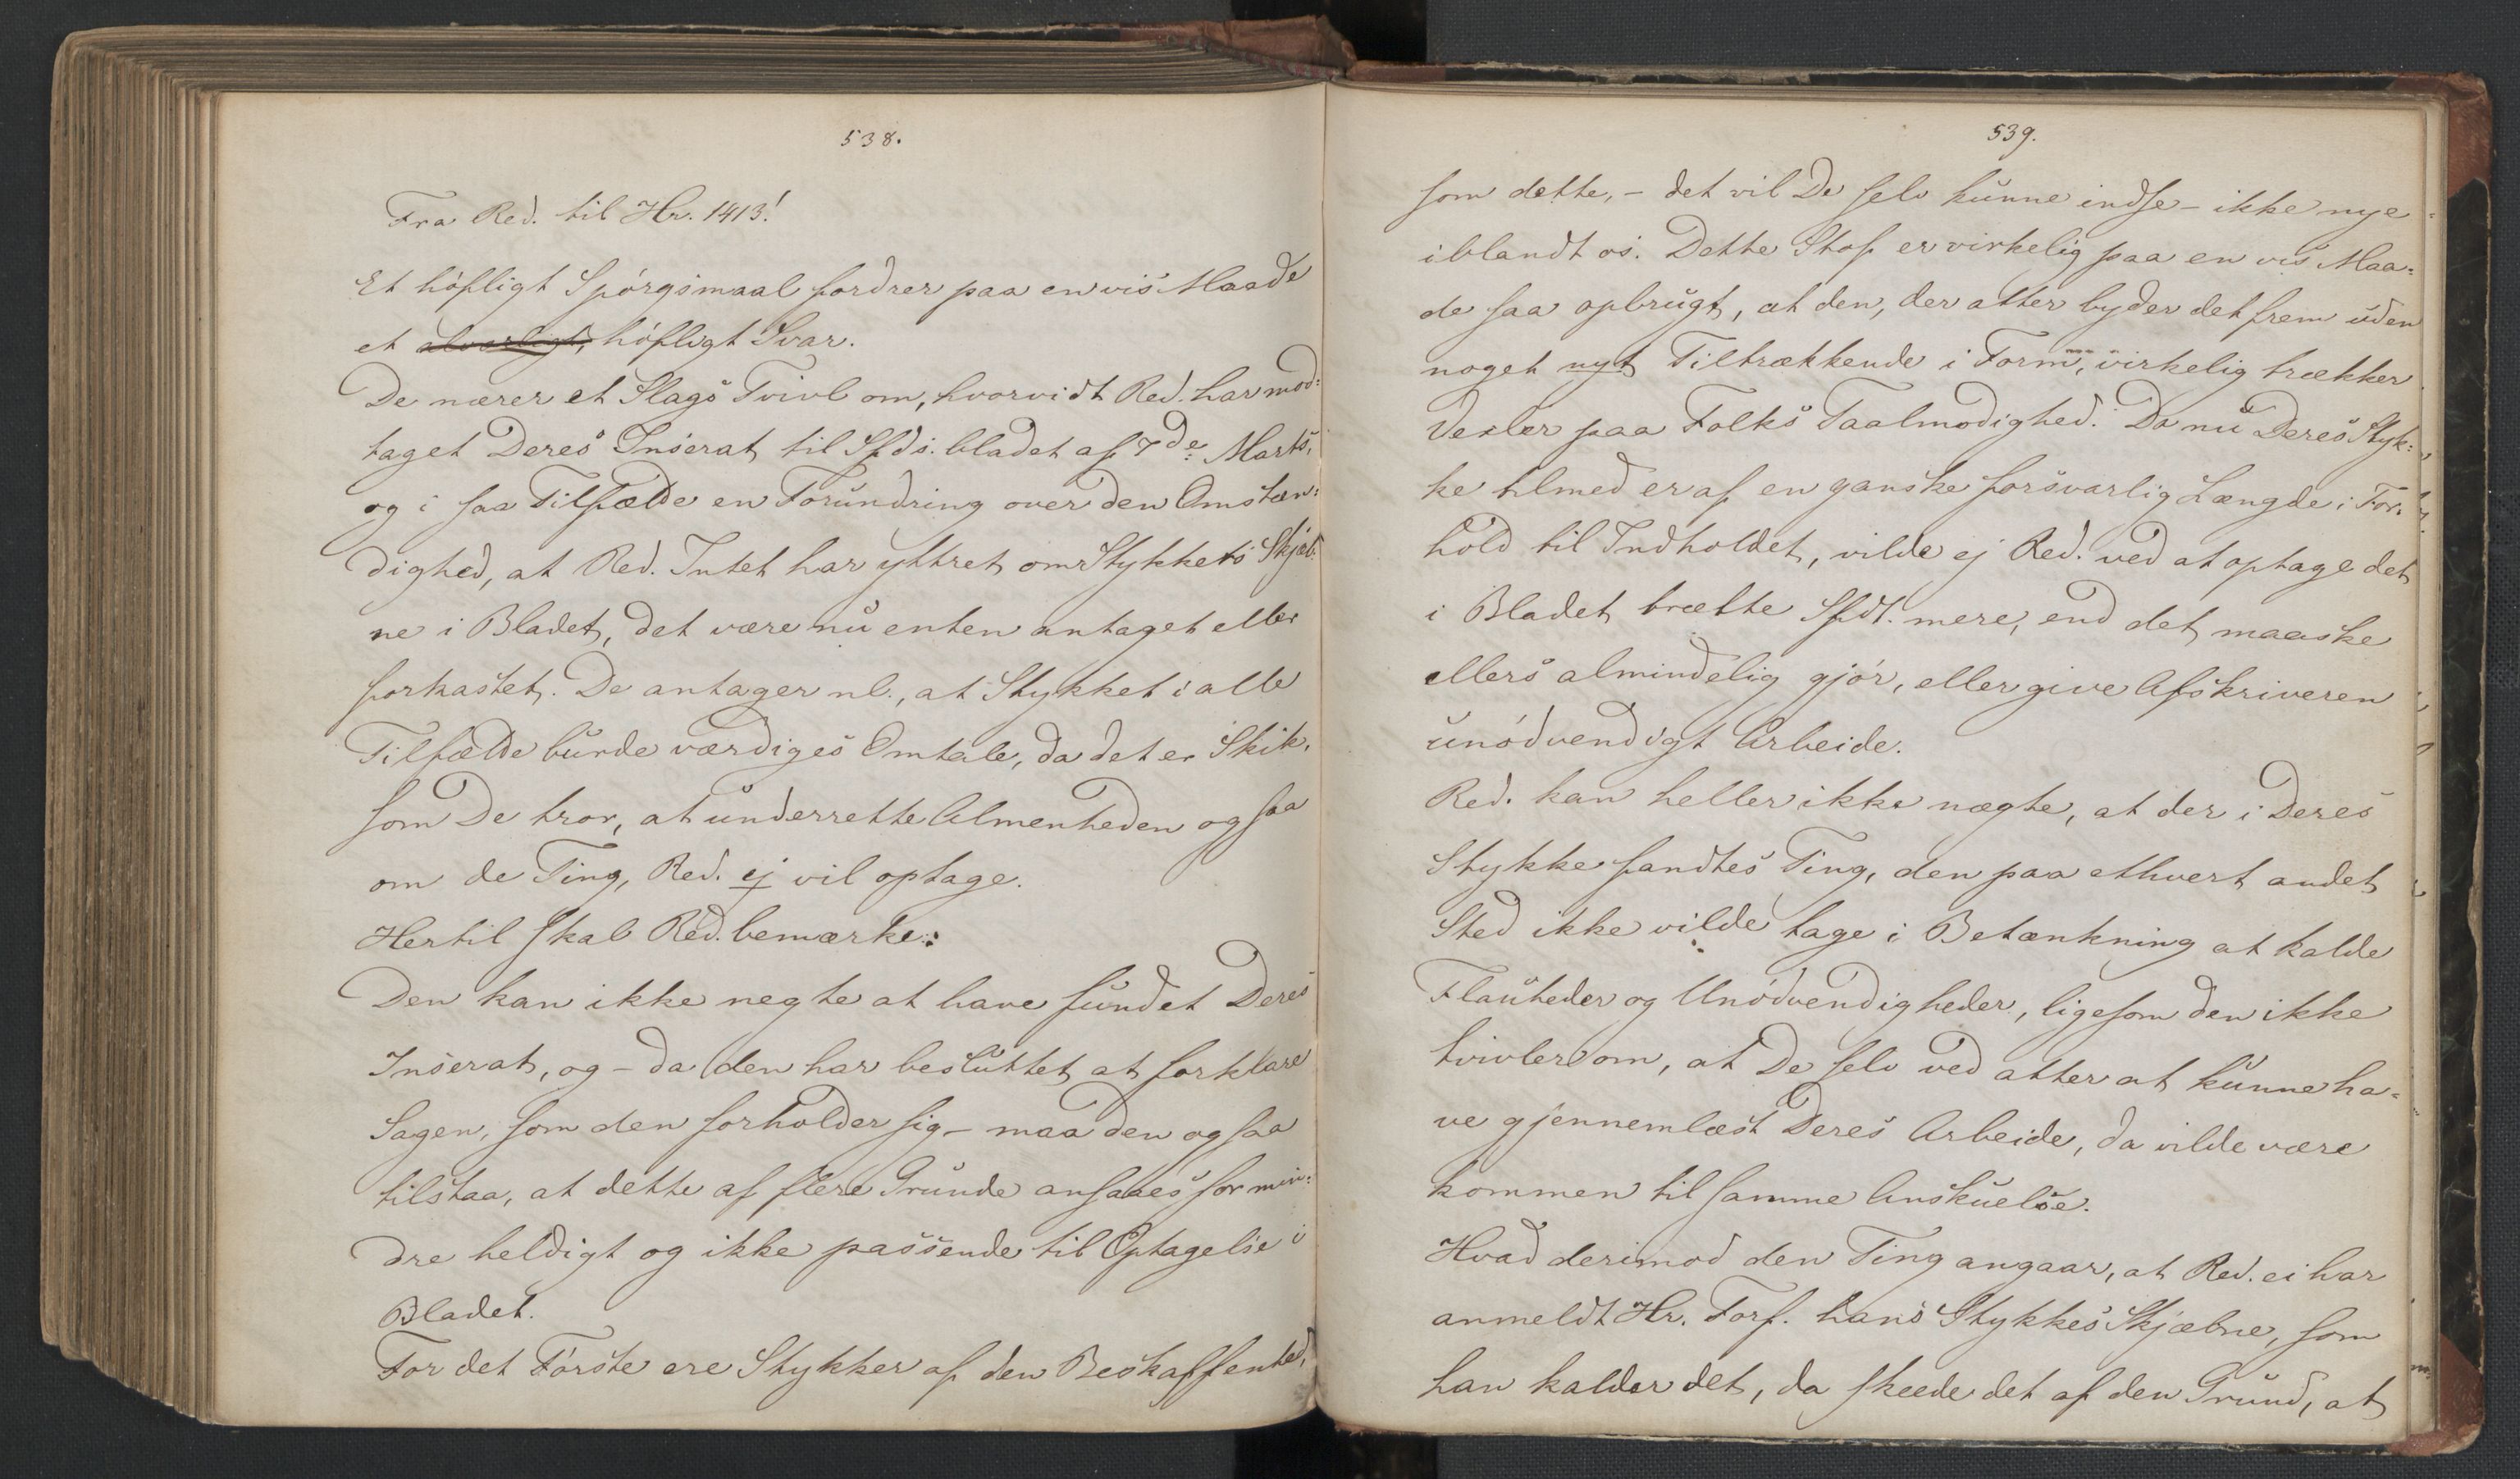 538.
Fra Red. til Hr. 1413!
Et höfligt Spörgsmaal fordrer paa en vis Maade
et alvorligt, höfligt Svar.
De nærer et Slags Tvivl om, hvorvidt Red. har mod=
taget Deres Inserat til Sfds. bladet af 7de Marts,
og i saa Tilfælde en Forundring over den Omstæn=
dighed, at Red. Intet har yttret om Stykkets Skjæb=
ne i Bladet, det være nu enten antaget eller
forkastet. De antager nl., at Stykket i alle
Tilfælde burde værdiges Omtale, da det er Skik,
som De tror, at underrette Almenheden ogsaa
om de Ting, Red. ej vil optage.
Hertil skal Red. bemærke:
Den kan ikke negte at have fundet Deres
Inserat, og - da den har besluttet at forklare
Sagen, som den forholder sig - maa den ogsaa
tilstaa, at dette af flere Grunde ansaaes for min=
dre heldigt og ikke passende til Optagelse i
Bladet.
For det Förste ere Stykker af den Beskaffenhed,
539.
som dette, - det vil De selv kunne indse - ikke nye
iblandt os. Dette Stof er virkelig paa en vis Maa=
de saa opbrugt, at den, der atter byder det frem uden
noget nyt Tiltrækkende i Form, virkelig trækker
Vexler paa Folks Taalmodighed. Da nu Deres Styk=
ke tilmed er af en ganske forsvarlig Længde i For=
hold til Indholdet, vilde ej Red. ved at optage det
i Bladet trætte Sfdt. mere, end det maaske
ellers almindelig gjör, eller give Afskriveren
unödvendigt Arbeide.
Red. kan heller ikke nægte, at der i Deres
Stykke fandtes Ting, den paa ethvert andet
Sted ikke vilde tage i Betænkning at kalde
Flautheder og Unödvendigheder, ligesom den ikke
tvivler om, at De selv ved atter at kunne ha=
ve gjennemlæst Deres Arbeide, da vilde være
kommen til samme Anskuelse.
Hvad derimod den Ting angaar, at Red. ei har
anmeldt Hr. Forf. hans Stykkes Skjæbne, som
han kalder det, da skeede det af den Grund, at